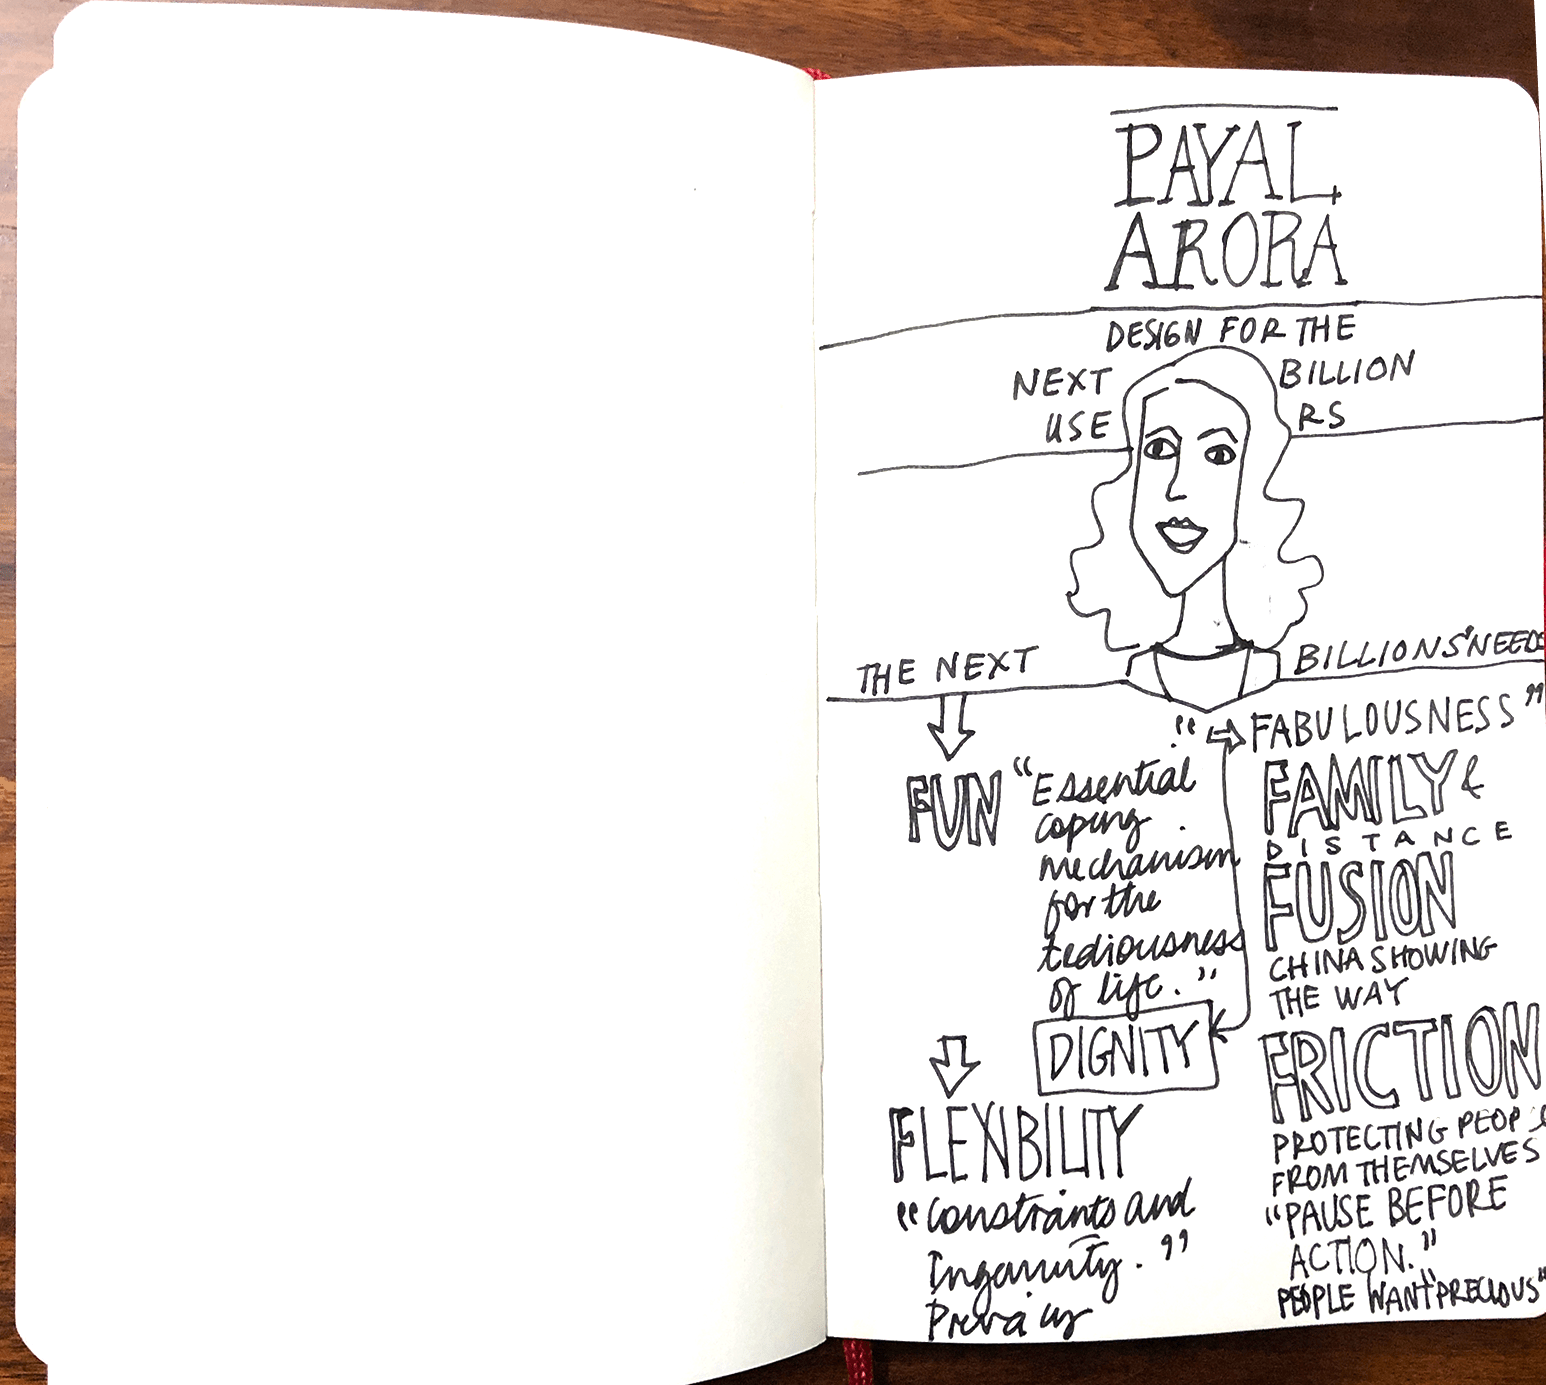 PAYAL
ARORA
DESIGN FOR THE
NEXT BILLION
USE RS
THE NEXT BILLIONS' NEEDS
FUN
"Essential
coping
mechanism
for the
tediousness
of life."
DIGNITY
FLEXIBILITY
"Constraints and
Inganuity."
Privacy
"FABULOUSNESS"
FAMILY &
DISTANCE
FUSION
CHINA SHOWING
THE WAY
FRICTION
PROTECTING PEOPLE
FROM THEMSELVES
"PAUSE BEFORE
ACTION."
PEOPLE WANT "PRECIOUS"